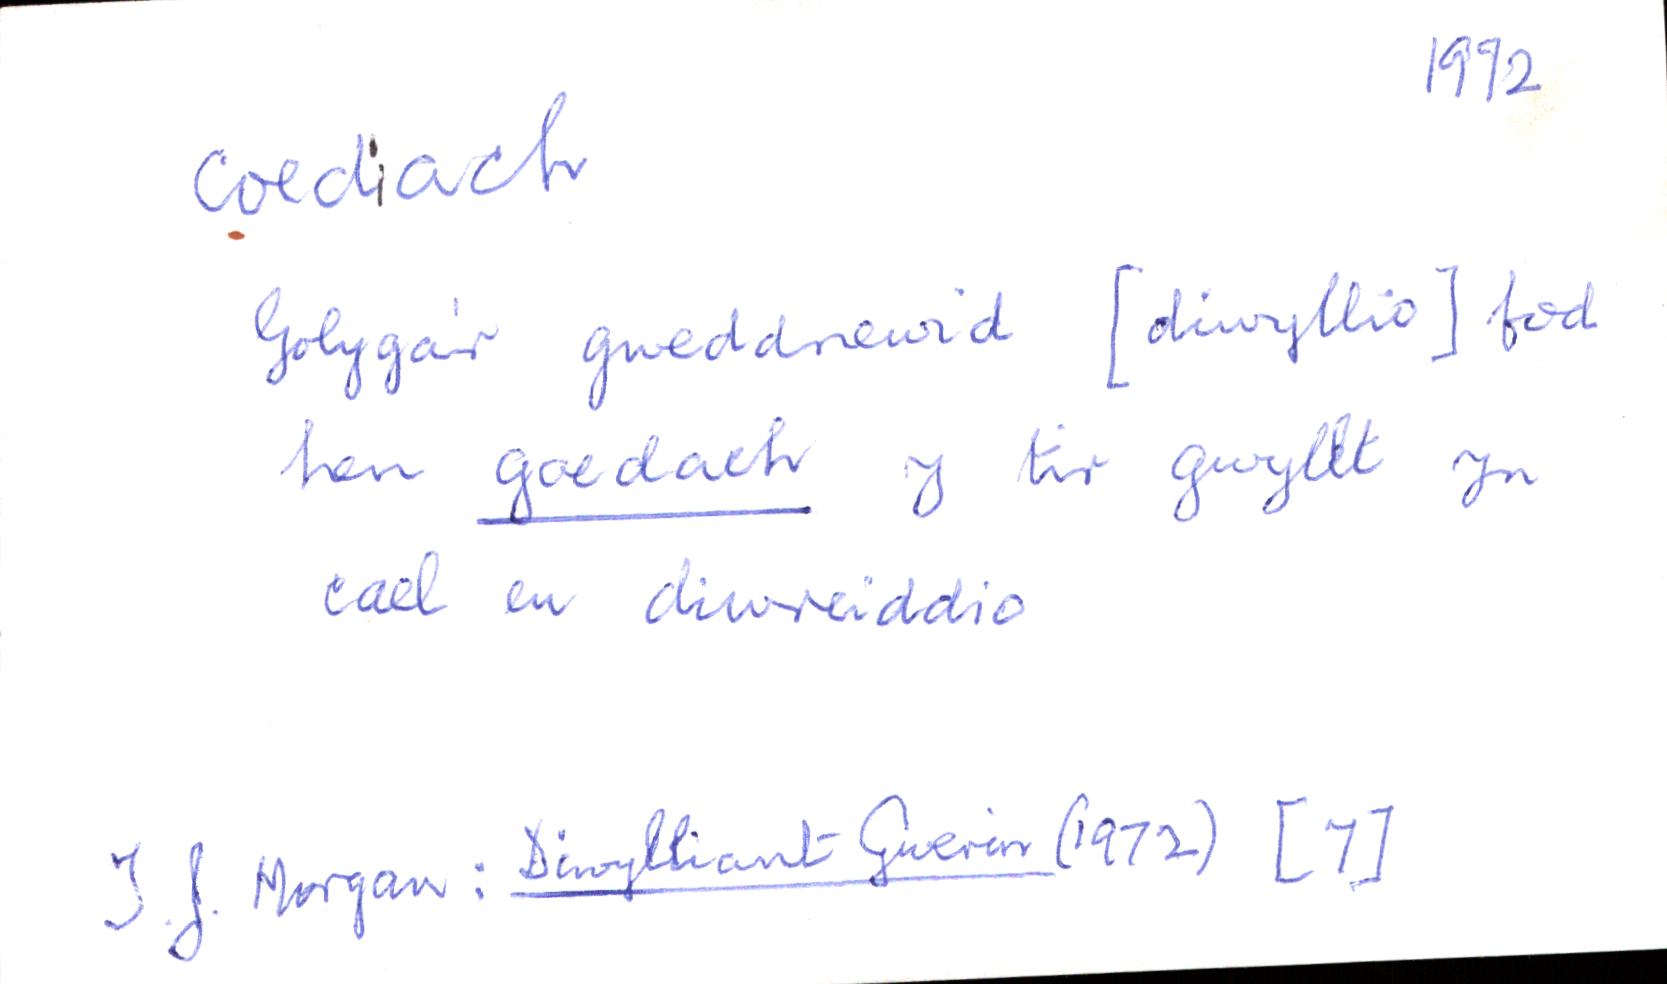 1992
coediach
Golyga'r gweddnewid [diwyllio] fod
hen goedach y tir gwyllt yn
cael eu diwreiddio
T.J. Morgan: Diwylliant Gwerin (1972) [7]